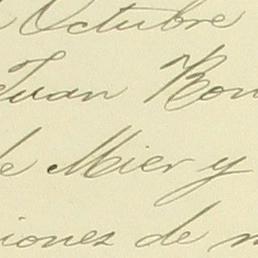 Octubre
Juan Rom
de Mier y
iones de m